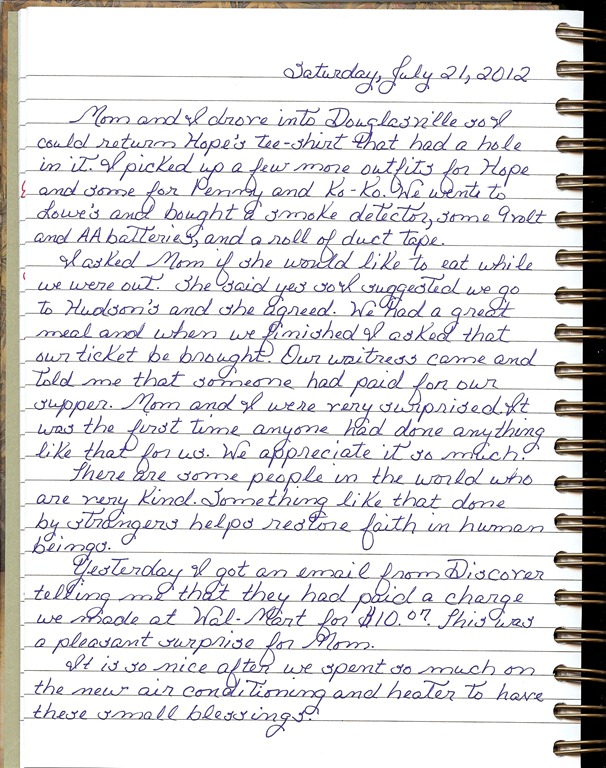 Saturday, July 21, 2012
Mom and I drove into Douglasville so I
could return Hope's tee-shirt that had a hole
in it. I picked up a few more outfits for Hope
and some for Penny and Ko-Ko. We wents to
Lowe's and bought a smoke detector, some 9 volt
and AA batteries, and a roll of duct tape.
I asked Mom if she would like to eat while
we were out. She said yes so I suggested we go
to Hudson's and she agreed. We had a great
meal and when we finished I asked that
our ticket be brought. Our waitress came and
told me that someone had paid for our
supper. Mom and I were very surprised. It
was the first time anyone had done anything
like that for us. We appreciate it so much.
There are some people in the world who
are very kind. Something like that done
by strangers helps restore faith in human
beings.
Yesterday I got an email from Discover
telling me that they had paid a charge
we made at Wal-Mart for $10.07. This was
a pleasant surprise for Mom.
It is so nice after we spent so much on
the new air conditioning and heater to have
these small blessings.